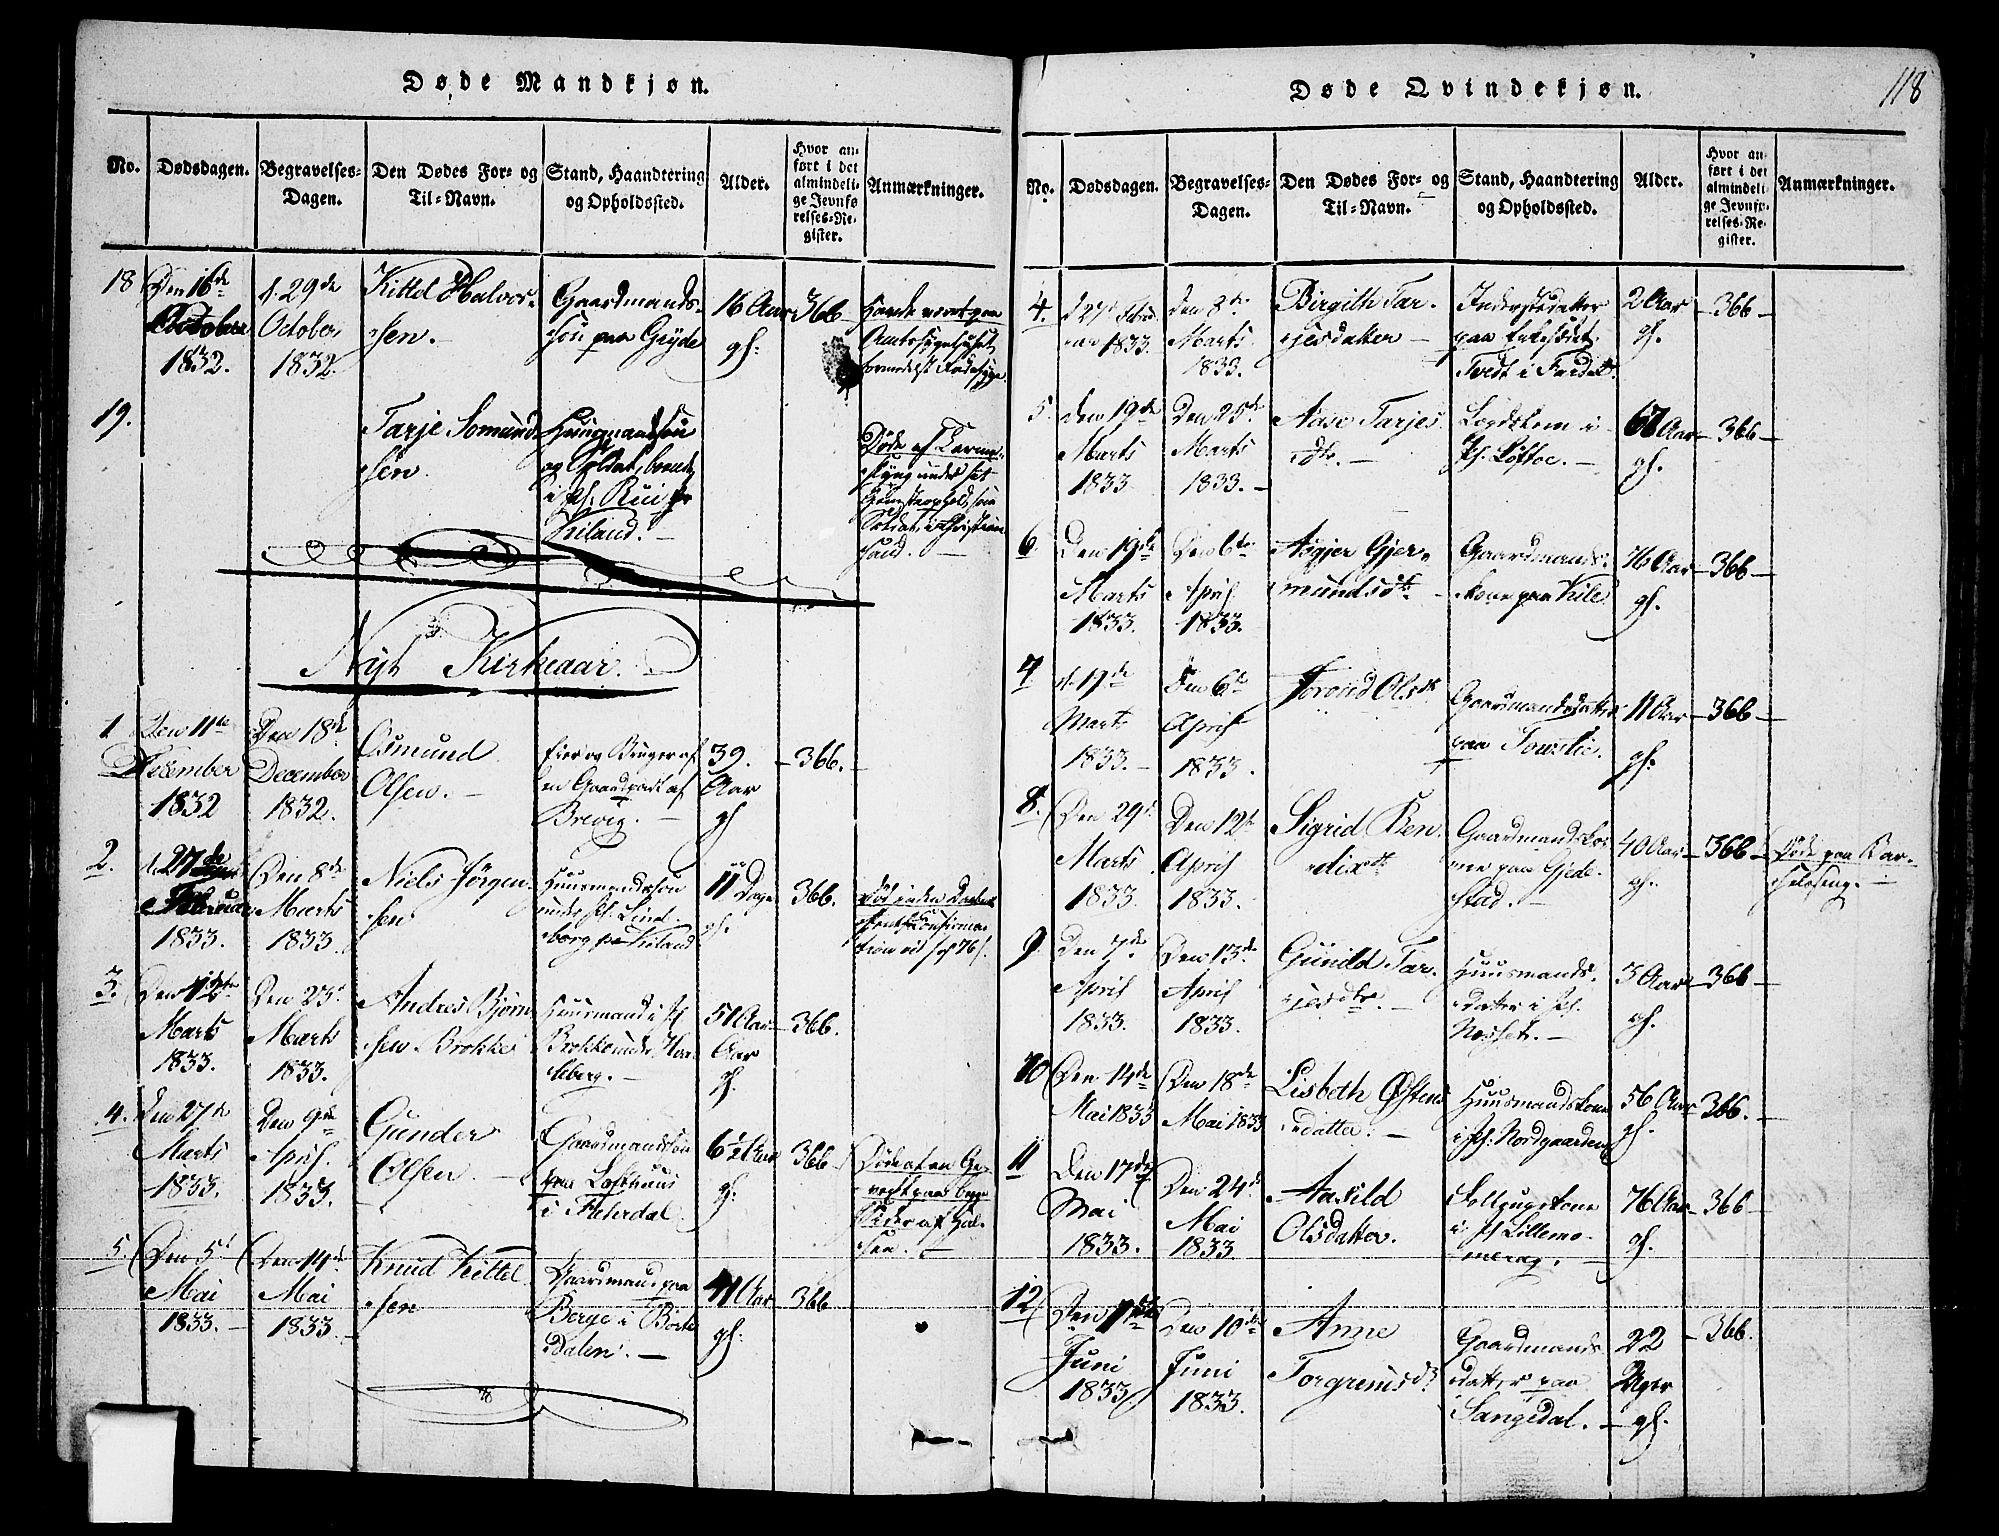 Døde Mandkjøn.
No.
Dødsdagen.
Begravelses-
Dagen.
Den Dødes For- og
Til-Navn.
Stand, Haandtering
og Opholdssted.
Alder.
Hvor an-
ført i det
almindeli-
ge Jevnfø-
relses-Re-
gister.
Anmærkninger.
18
Den 16de
October
1832.
d. 29de
October
1832.
Kittel Halvor-
sen.
Gaardmands-
søn paa Gryde
16 Aar
gl.
366
Havde været paa
Amtssygehuset
formedelst Radesyge
19.
Tarje Somund-
sen.
Huusmandsøn
og Soldat,
i Pl. Rui
Kiland.
Døde af
under sit
som
Soldat i Christian-
sand.
Nyt Kirkeaar.
1
Den 11te
December
1832
Den 18de
December
1832.
Osmund
Olsen.
Eier og Bruger af
en Gaardpart af
Brevig.
39.
Aar
gl
366.
2.
d. 27de
Februar
1833.
Den 8de
Marts
1833.
Niels Jørgen-
sen
Huusmandssøn
under Pl. Lind-
borg Kiland
11 Dage
gl.
366.
Død inden Daabens
Confirma-
tion
3.
Den 12te
Marts
1833.
Den 23de
Marts
1833.
Andres Bjørn-
sen Brokke
Huusmand i Pl.
Brokke under
berg.
51 Aar
Aar
gl.
366.
4.
Den 27de
Marts
1833.
Den 9de
April
1833.
Gunder
Olsen
Gaardmandssøn
paa Lofthuus
i Fiskerdal
6½ Aar
gl.
366
Døde af en Ge-
vext paa begge
Sider af Hal-
sen.
5.
Den 5te
Mai
1833.
Den 14de
Mai
1833.
Knud Kittel-
sen
Gaardmand paa
Berge i Børte-
dalen.
41 Aar
gl.
366
Døde Qvindekjøn.
118
No.
Dødsdagen.
Begravelses-
Dagen.
Den Dødes For- og
Til-Navn.
Stand, Haandtering
og Opholdssted.
Alder.
Hvor an-
ført i det
almindeli-
ge Jevnfø-
relses-Re-
gister.
Anmærkninger.
4.
d 27de Febru-
ar 1833.
Den 8de
Marts
1833.
Birgith Tar-
jesdatter
Inderstedatter
paa Enkesædet
Tvedt i
2 Aar
gl.
366
5.
Den 19de
Marts
1833
Den 25de
Marts
1833.
Aase Tarjes-
dtr.
Lægdslem i
Pl. Løftoe.
67 Aar
gl.
366
6
Den 19de
Marts
1833.
Den 6te
April
1833.
Asgjer Gjer-
mundsdtr.
Gaardmands-
kone paa Kile
76 Aar
gl.
366
7
d. 19de
Marts
1833.
Den 6te
April
1833.
Torond Olsdtr
Gaardmandsdatter
paa Tousli.
11 Aar
gl.
366
8.
Den 29de
Marts
1833
Den 12te
April
1833.
Sigrid Ben-
dixdtr
Gaardmandsko-
ne paa Gjede-
stad.
40 Aar
gl.
366
Døde paa Bar-
selseng.
9.
Den 7de
April
1833.
Den 13de
April
1833.
Gunild Tar-
jesdtr.
Huusmands-
datter i Pl.
Næsset.
3 Aar
gl.
366
10
Den 14de
Mai 1833
Den 18de
Mai 1833
Lisbeth Østens-
datter.
Huusmandskone
i Pl. Nordgaarden
56 Aar
gl.
366.
11
Den 17de
Mai
1833.
Den 24de
Mai
1833
Aasild
Olsdatter.
Folkugskone
i Pl Lillemo-
76 Aar
gl.
366
12
Den 1ste
Juni
1833
Den 10de
Juni
1833.
Anne
Torgrimsd.
Gaardmands
datter paa
Sangedal.
22
Uger
gl.
366.